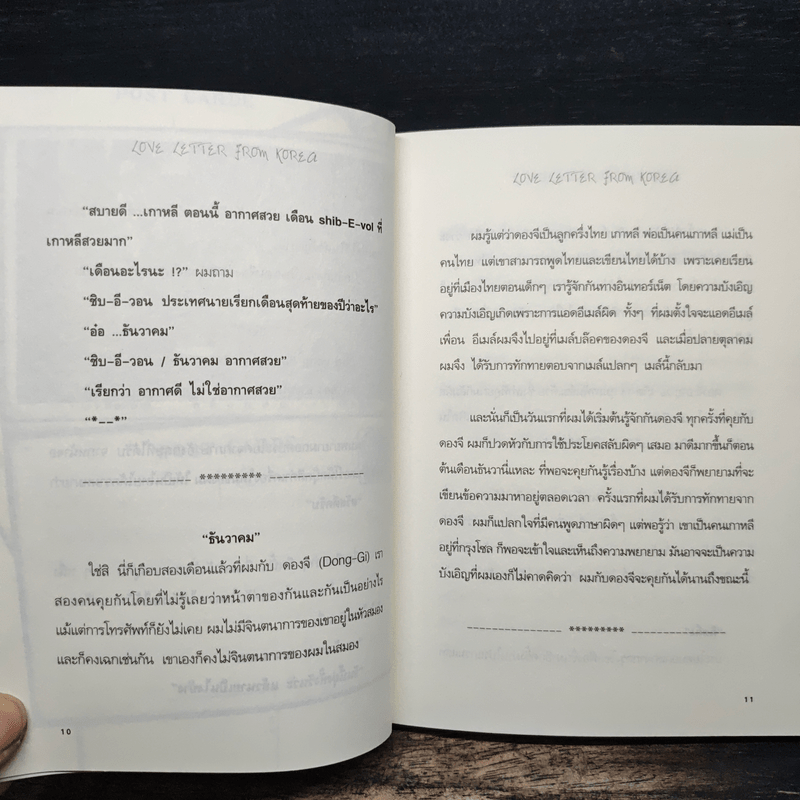 LOVE LETTER FROM KOREA
“สบายดี ...เกาหลี ตอนนี้ อากาศสวย เดือน shib-E-vol ที่
เกาหลีสวยมาก”
“เดือนอะไรนะ !?” ผมถาม
“ชิบ-อี-วอน ประเทศนายเรียกเดือนสุดท้ายของปีว่าอะไร”
“อ๋อ ...ธันวาคม”
“ชิบ-อี-วอน / ธันวาคม อากาศสวย”
“เรียกว่า อากาศดี ไม่ใช่อากาศสวย”
“*__*”
---------------- ********* ----------------
“ธันวาคม”
ใช่สิ นี่ก็เกือบสองเดือนแล้วที่ผมกับ ดองจี (Dong-Gi) เรา
สองคนคุยกันโดยที่ไม่รู้เลยว่าหน้าตาของกันและกันเป็นอย่างไร
แม้แต่การโทรศัพท์ก็ยังไม่เคย ผมไม่มีจินตนาการของเขาอยู่ในหัวสมอง
และก็คงเฉกเช่นกัน เขาเองก็คงไม่จินตนาการของผมในสมอง
10
LOVE LETTER FROM KOREA
ผมรู้แต่ว่าดองจีเป็นลูกครึ่งไทย เกาหลี พ่อเป็นคนเกาหลี แม่เป็น
คนไทย แต่เขาสามารถพูดไทยและเขียนไทยได้บ้าง เพราะเคยเรียน
อยู่ที่เมืองไทยตอนเด็กๆ เรารู้จักกันทางอินเทอร์เน็ต โดยความบังเอิญ
ความบังเอิญเกิดเพราะการแอดอีเมล์ผิด ทั้งๆ ที่ผมตั้งใจจะแอดอีเมล์
เพื่อน อีเมล์ผมจึงไปอยู่ที่เมล์บล๊อคของดองจี และเมื่อปลายตุลาคม
ผมจึง ได้รับการทักทายตอบจากเมล์แปลกๆ เมล์นี้กลับมา
และนั่นก็เป็นวันแรกที่ผมได้เริ่มต้นรู้จักกันดองจี ทุกครั้งที่คุยกับ
ดองจี ผมก็ปวดหัวกับการใช้ประโยคสลับผิดๆ เสมอ มาดีมากขึ้นก็ตอน
ต้นเดือนธันวานี่แหละ ที่พอจะคุยกันรู้เรื่องบ้าง แต่ดองจีก็พยายามที่จะ
เขียนข้อความมาหาอยู่ตลอดเวลา ครั้งแรกที่ผมได้รับการทักทายจาก
ดองจี ผมก็แปลกใจที่มีคนพูดภาษาผิดๆ แต่พอรู้ว่า เขาเป็นคนเกาหลี
อยู่ที่กรุงโซล ก็พอจะเข้าใจและเห็นถึงความพยายาม มันอาจจะเป็นความ
บังเอิญที่ผมเองก็ไม่คาดคิดว่า ผมกับดองจีจะคุยกันได้นานถึงขณะนี้
---------------- ********* ----------------
11